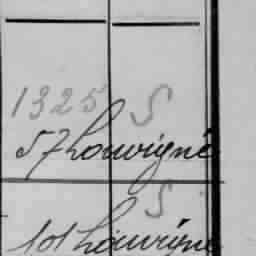 1325 S
57 Louvigné
S
101 Louvigné